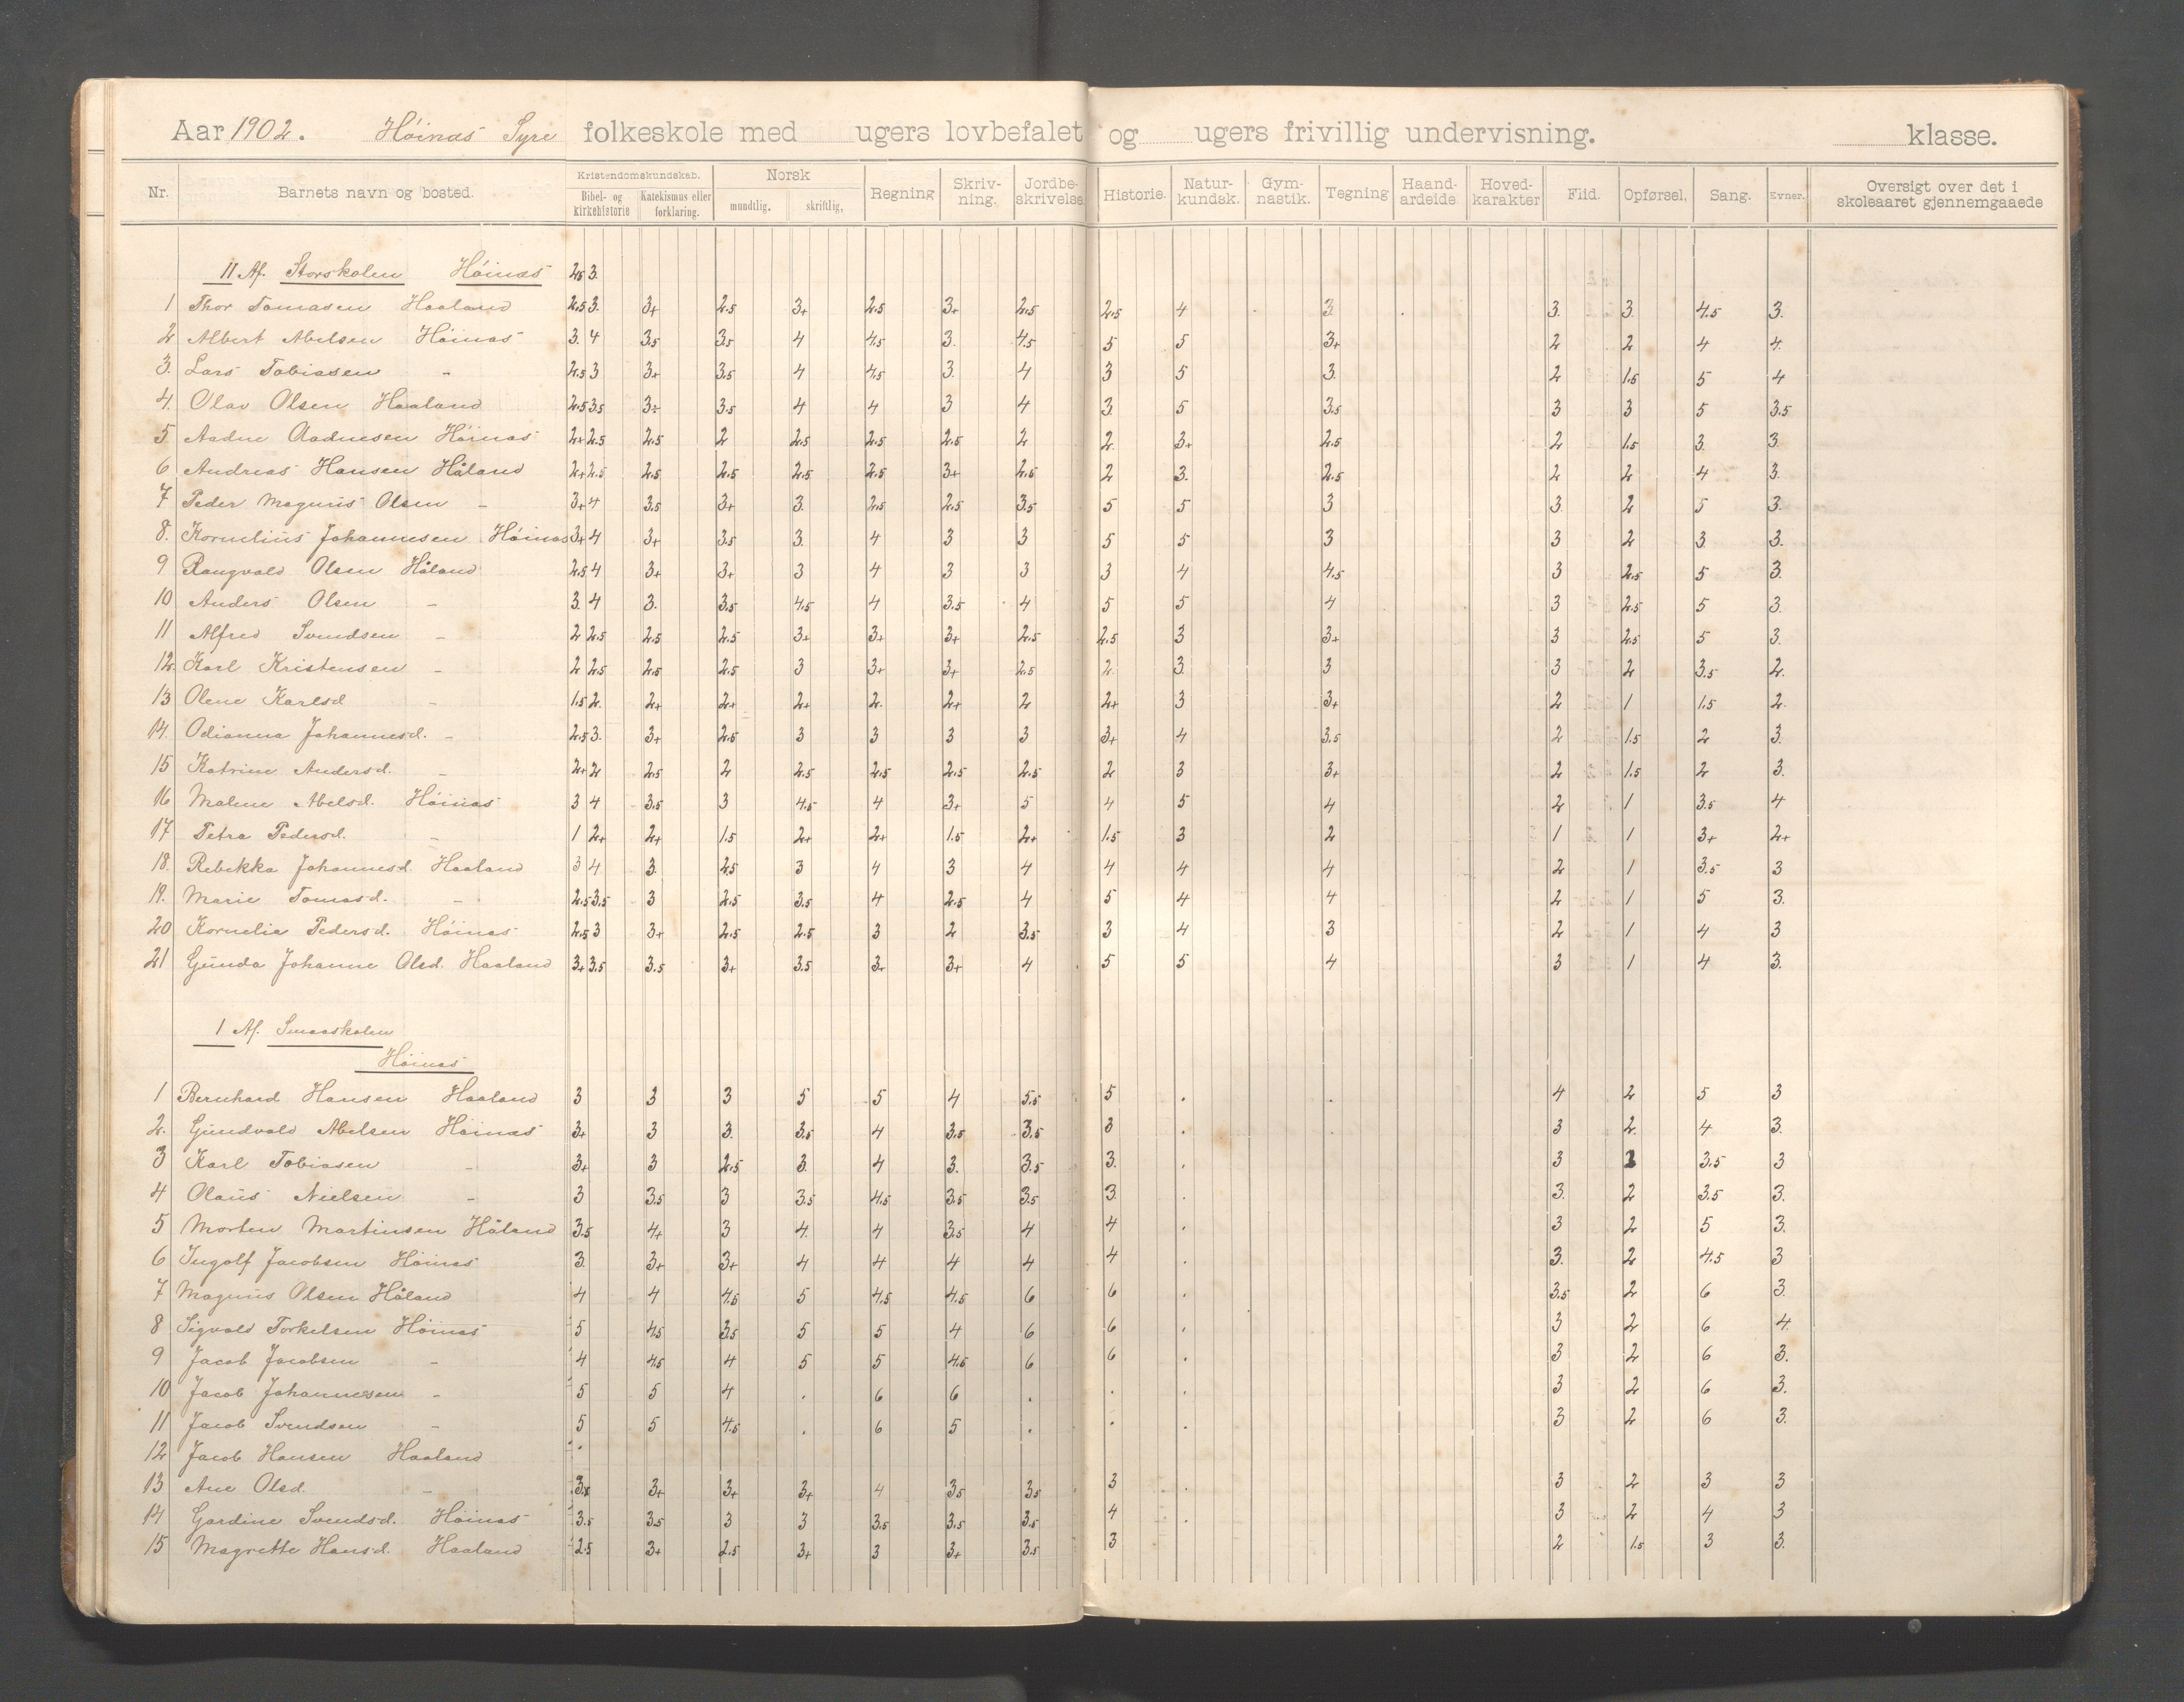 Aar 1902. Höinæs Syre folkeskole med ugers lovbefalet og ugers frivillig undervisning. klasse.
Nr. Barnets navn og bosted. Kristendomskundskab. Bibel- og kirkehistorie Katekismus eller forklaring. Norsk mundtlig. skriftlig. Regning Skriv-ning. Jordbe-skrivelse Historie. Natur-kundsk. Gym-nastik. Tegning Haand-arbeide Hoved-karakter Flid. Opførsel. Sang. Evner. Oversigt over det i skoleaaret gjennemgaaede
II Af. Storskolen Höinæs 2.5 3.
1 Thor Tomasen Haaland 2.5 3. 3+ 2.5 3+ 2.5 3+ 2.5 2.5 4 3. 3. 3. 4.5 3.
2 Albert Abelsen Höinæs 3. 4 3.5 3.5 4 4.5 3. 4.5 5 5 3+ 2 2 4 4.
3. Lars Tobiasen - 2.5 3 3+ 3.5 4 4.5 3. 4 3 5 3. 2 1.5 5 4
4. Olav Olsen Haaland 2.5 3.5 3+ 3.5 4 4 3 4 3. 5 3.5 3 3 5 3.5
5. Aadne Aadnesen Höinæs 2+ 2.5 2.5 2 2.5 2.5 2.5 2 2. 3+ 2.5 2 1.5 3. 3.
6 Andreas Hansen Håland 2+ 2.5 2.5 2.5 2.5 2.5 3+ 2.5 2 3. 2.5 2 2 4 3.
7 Peder Magnus Olsen - 3+ 4 3.5 3+ 3. 2.5 2.5 3.5 5 5 3 3. 2 5 3.
8. Kornelius Johannesen Höinæs 3+ 4 3+ 3.5 3. 4 3 3 5 5 3 3 2 3. 3.
9 Rangvald Olsen Håland 2.5 4 3+ 3+ 3 4 3 3 3 4 4.5 3 2.5 5 3.
10 Anders Olsen - 3. 4 3. 3.5 4.5 4 3.5 4 5 5 4 3 2.5 5 3.
11 Alfred Svendsen - 2 2.5 2.5 2.5 3+ 3+ 3+ 2.5 2.5 3 3+ 3 2.5 5 3.
12. Karl Kristensen - 2 2.5 2.5 2.5 3 3+ 3+ 2.5 2. 3. 3 3 2 3.5 2.
13 Olene Karlsd - 1.5 2. 2+ 2+ 2+ 2. 2+ 2 2+ 3 3+ 2 1 1.5 2.
14. Odianna Johannesd. - 2.5 3. 3+ 2.5 3 3 3 3 3+ 4 3.5 2 1.5 2 3.
15 Katrine Andersd. - 2+ 2 2.5 2 2.5 2.5 2.5 2.5 2 3 3+ 2 1.5 2 3.
16 Malene Abelsd. Höinæs 3 4 3.5 3 4.5 4 3+ 5 4 5 4 2 1 3.5 4
17 Petra Pedersd. - 1 2+ 2+ 1.5 2+ 2+ 1.5 2+ 1.5 3 2 1 1 3+ 2+
18. Rebekka Johannesd. Haaland 3 4 3. 2.5 3 4 3 4 4 4 4 2 1 3.5 3
19. Marie Tomasd. - 2.5 3.5 3 2.5 3.5 4 2.5 4 5 4 4 2 1 5 3.
20 Kornelia Pedersd. Höinæs 2.5 3 3+ 2.5 2.5 3 2 3.5 3 4 3 2 1 4 3
21 Gunda Johanne Olsd. Haaland 3+ 3.5 3.5 3+ 3.5 3+ 3+ 4 5 5 4 3 1 4 3.
1 Af. Smaaskolen
Höinæs
1 Bernhard Hansen Haaland 3 3 3 5 5 4 5.5 5 . . 4 2 5 3
2. Gundvald Abelsen Höinæs 3+ 3 3. 3.5 4 3.5 3.5 3 . . 3 2. 4 3.
3 Karl Tobiasen - 3+ 3 2.5 3. 4 3. 3.5 3. . 3 2 3.5 3
4 Olaüs Nielsen - 3 3.5 3 3.5 4.5 3.5 3.5 3. . 3. 2 3.5 3.
5 Morten Martinsen Håland 3.5 4+ 3 4. 4 3.5 4 4 . 3 2 5 3.
6 Ingolf Jacobsen Höinæs 3. 3+ 3+ 4 4 4 4 4 . 3. 2 4.5 3
7 Magnus Olsen Håland 4 4 4.5 5 4.5 4.5 6 6 . 3.5 2 6 3.
8 Sigvald Torkelsen Höinæs 5 4.5 3.5 5 5 4 6 6 . 3 2 6 4.
9 Jacob Jacobsen - 4 4.5 4 5 5 4.5 6 6 . 3 2 6 3.
10 Jacob Johannesen - 5 5 4 . 6 6 . . . 3 2 6 3.
11 Jacob Svendsen - 5 5 4.5 . 6 5 . . . 3 2 6 3.
12 Jacob Hansen Haaland .
13 Ane Olsd. - 3.5 3+ 3+ 3+ 4 3.5 3.5 3 . 3 2 3 3
14 Gardine Svendsd. Höinæs 3.5 3.5 3 3 3.5 3.5 3.5 4 . 3 2 4 3
15 Magrette Hansd. Haaland 2.5 3+ 2.5 3+ 3 3+ 3.5 3 2 1.5 3 3.